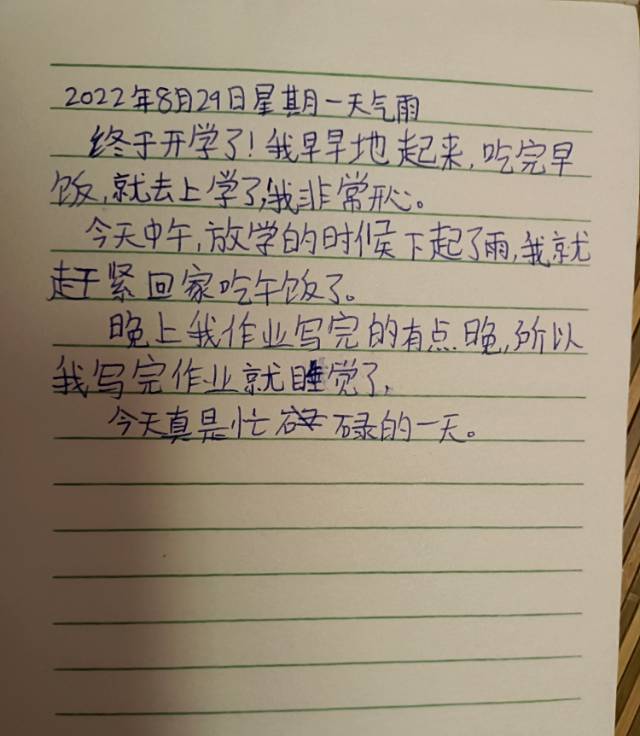 2022年8月29日星期一天气雨
终于开学了!我早早地起来,吃完早
饭,就去上学了,我非常开心。
今天中午,放学的时候下起了雨,我就
赶紧回家吃午饭了。
晚上我作业写完的有点晚,所以
我写完作业就睡觉了,
今天真是忙碌的一天。